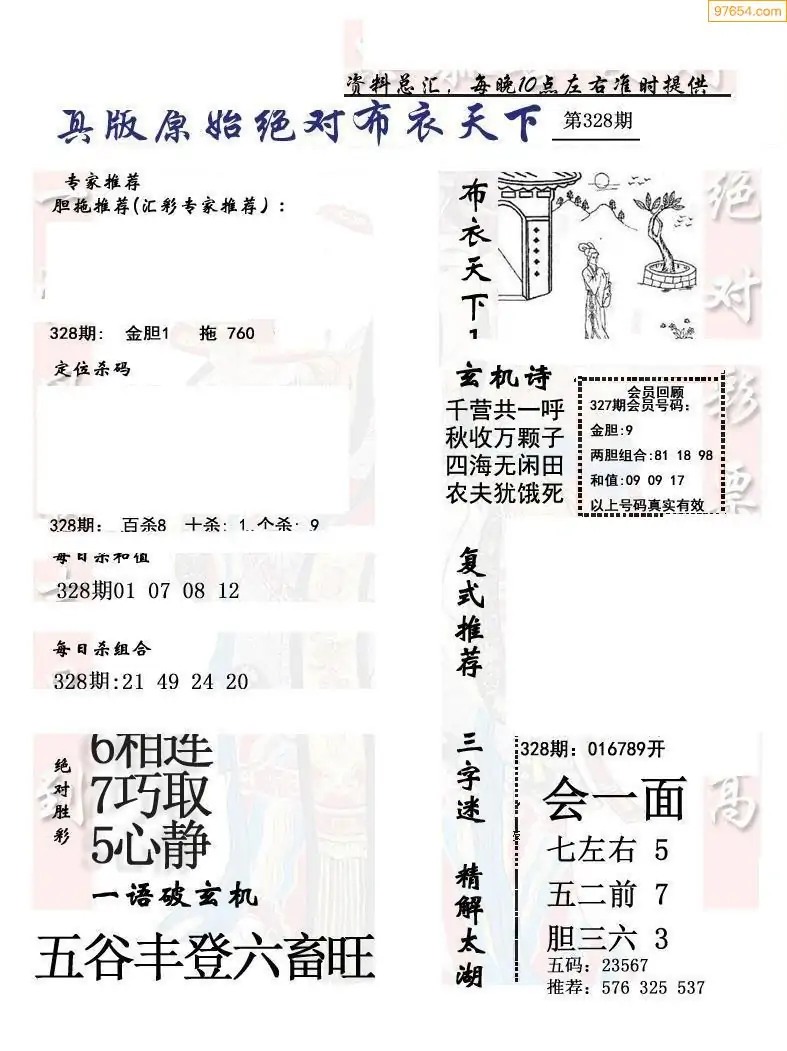 97654.com
资料总汇，每晚10点左右准时提供
真版原始绝对布衣天下 第328期
专家推荐
胆拖推荐(汇彩专家推荐)：
328期： 金胆1 拖 760
定位杀码
328期： 百杀8 十杀：1..个杀：9
每日杀和值
328期01 07 08 12
每日杀组合
328期:21 49 24 20
绝对胜彩
6相连
7巧取
5心静
一语破玄机
五谷丰登六畜旺
布衣天下
玄机诗
千营共一呼
秋收万颗子
四海无闲田
农夫犹饿死
会员回顾
327期会员号码：
金胆:9
两胆组合:81 18 98
和值:09 09 17
以上号码真实有效
复式推荐
三字迷
328期：016789开
会一面
精解太湖
七左右 5
五二前 7
胆三六 3
五码：23567
推荐：576 325 537
绝对彩票
高